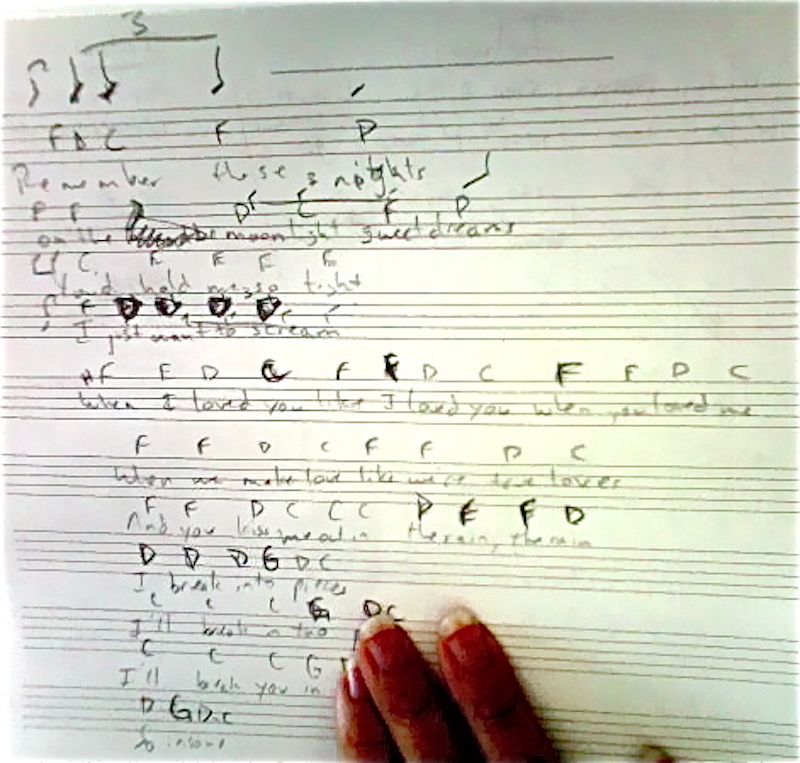 3
F D C F D
Remember those 3 nights
F F D C F D
on the moonlight sweet dreams
C F F F F
You'd hold me so tight
F D D D D
I just want to scream
F F D C F F D C F F D C
When I loved you like I loved you when you loved me
F F D C F F D C
When we make love like we're true lovers
F F D C C C D E F D
And you kiss me out in the rain, the rain
D D D G D C
I break into pieces
C C C G D C
I'll break in two
C C C G
I'll break you in
D G D C
So insane